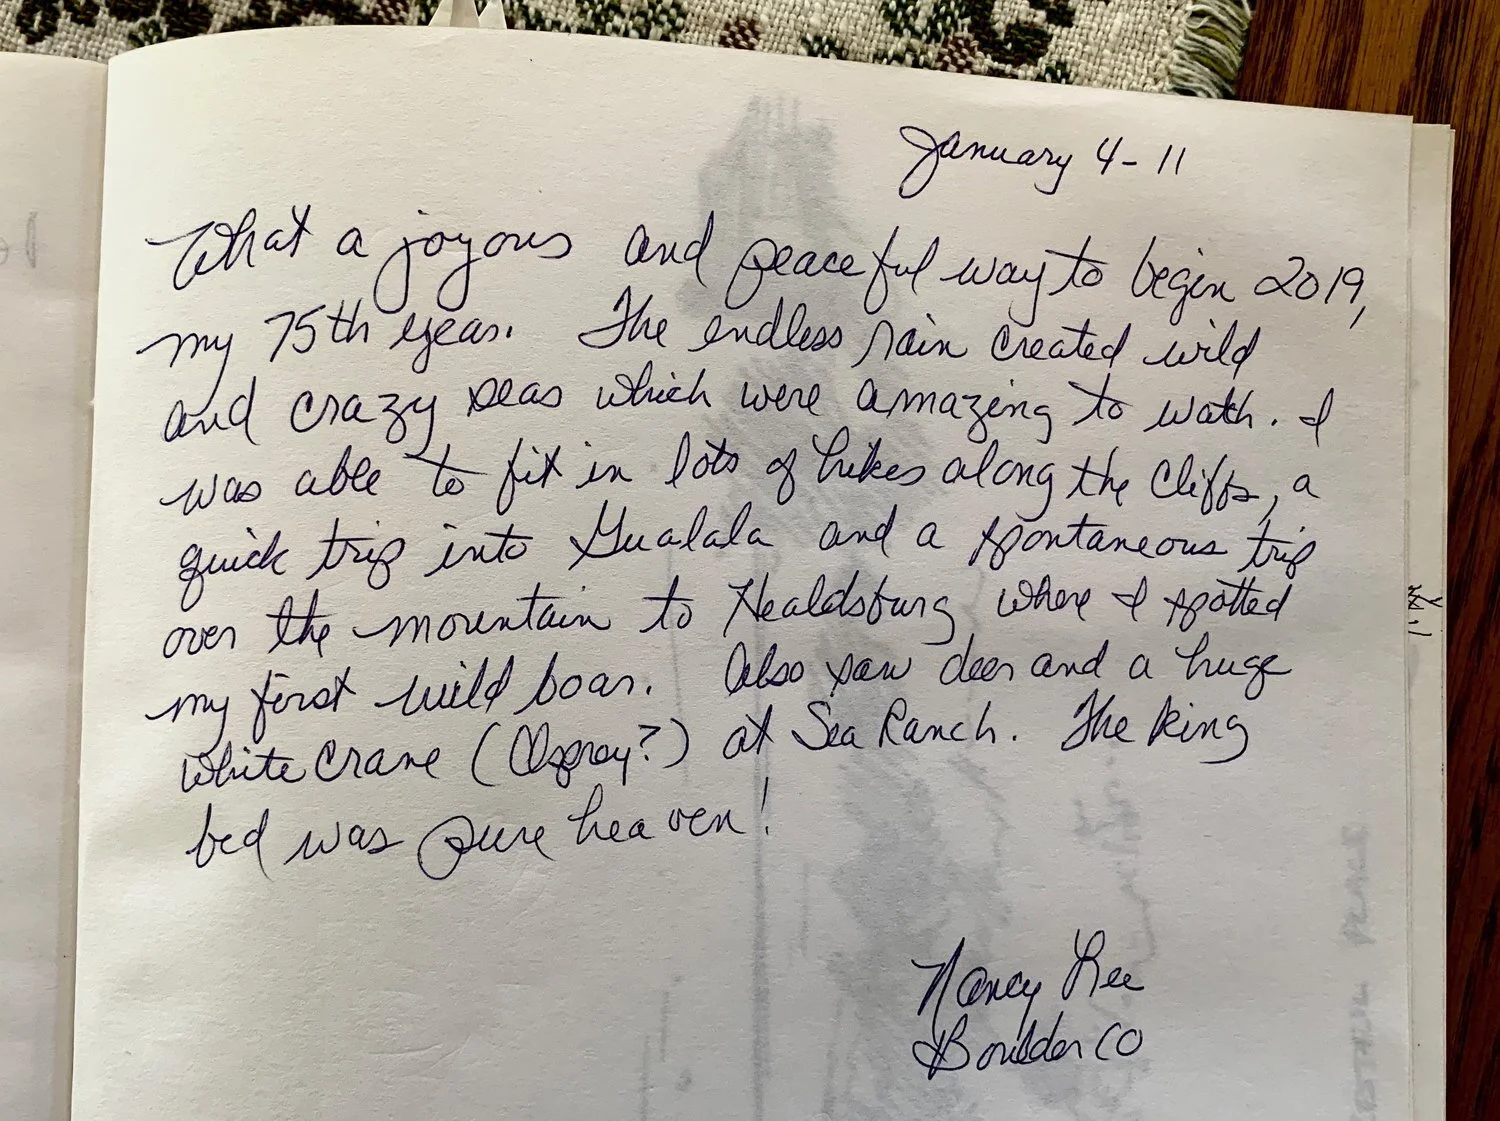 January 4-11
What a joyous and peaceful way to begin 2019,
my 75th year. The endless rain created wild
and crazy seas which were amazing to watch. I
was able to fit in lots of hikes along the cliffs, a
quick trip into Gualala and a spontaneous trip
over the mountain to Healdsburg where I spotted
my first wild boar. Also saw deer and a huge
white crane (Osprey?) at Sea Ranch. The king
bed was pure heaven!
Nancy Lee
Boulder CO